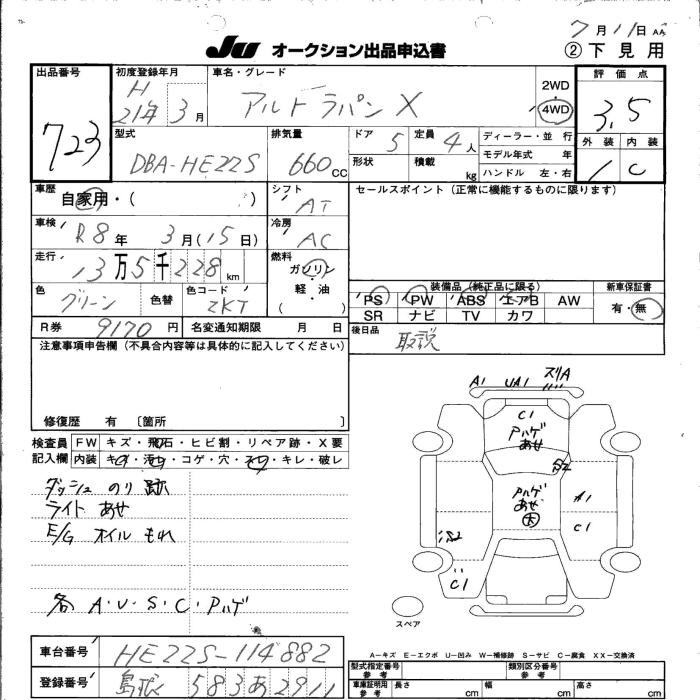 7月11日 AA
JU オークション出品申込書 ②下見用
出品番号 初度登録年月 車名・グレード 評価点
723 H21年3月 アルトラパン X 2WD・4WD 3.5
型式 排気量 ドア 5 定員 4人 ディーラー・並行 外装 内装
DBA-HE22S 660CC 形状 積載 kg モデル年式 年 1 C
ハンドル 左・右
車歴 自家用・( ) シフト AT セールスポイント(正常に機能するものに限ります)
車検 R8年3月(15日) 冷房 AC
走行 13万5千228km 燃料 ガソリン・軽油 ( )
装備品(純正品に限る) 新車保証書
色 グリーン 色替 色コード ZKT PS PW ABS エアB AW 有・無
SR ナビ TV カワ
R券 9170円 名変通知期限 月 日 後日品 取説
注意事項申告欄(不具合内容等は具体的に記入してください)
修復歴 有 〔箇所 〕
検査員記入欄 FW キズ・飛石・ヒビ割・リペア跡・X要
内装 キズ・汚れ・コゲ・穴・スレ・キレ・破レ
ダッシュ のり跡
ライト あせ
E/G オイルもれ
各 A・U・S・C・Pハゲ
A1 UA1 スリA
C1
Pハゲ
あせ
S2
Pハゲ
あせ
大
A1
C1
S2
C1
スペア
A-キズ E-エクボ U-凹み W-補修跡 S-サビ C-腐食 XX-交換済
車台番号 HE22S-114882
登録番号 島根 583 あ 2911
型式指定番号 参考 類別区分番号 参考
車庫証明用 参考 長さ cm 幅 cm 高さ cm